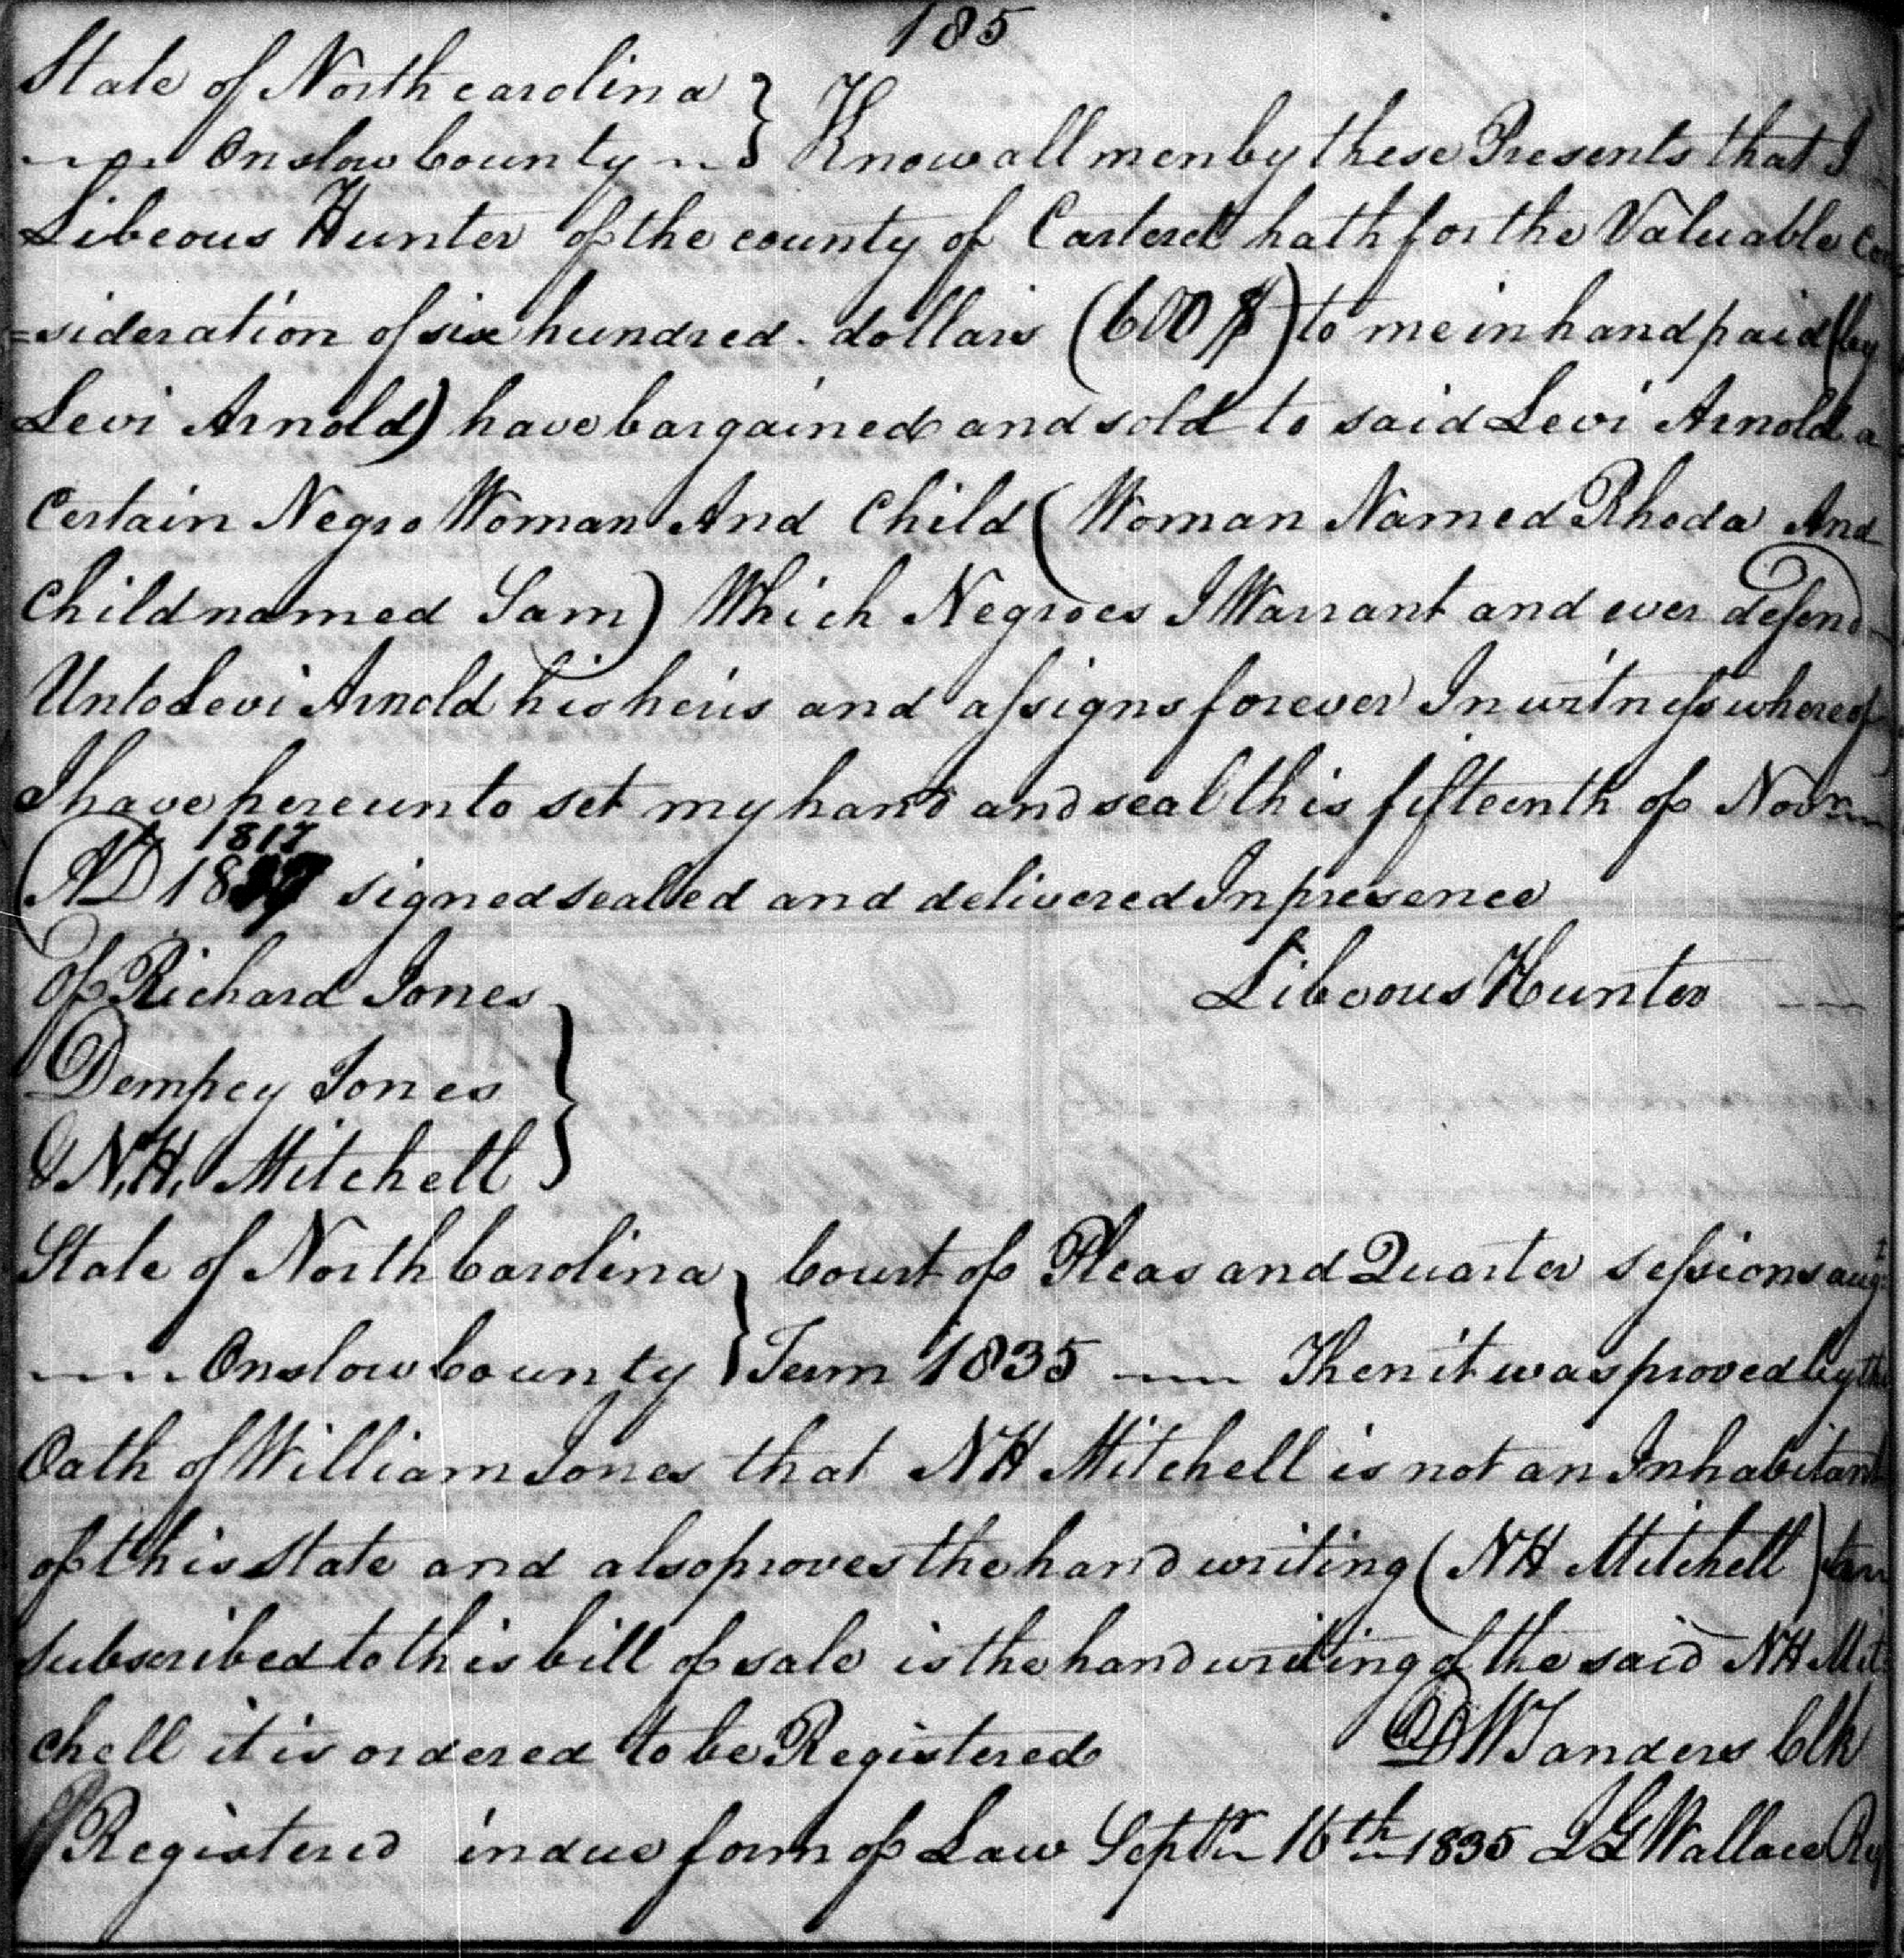 185
State of North carolina }
Onslow County } Know all men by these Presents that I
Libeous Hunter of the county of Carteret hath for the Valuable con
=sideration of six hundred dollars (600 $) to me in hand paid (by
Levi Arnold) have bargained and sold to said Levi Arnold a
Certain Negro Woman And Child (Woman Named Rhoda And
Child named Sam) Which Negroes I Warrant and ever defend
Unto Levi Arnold his heirs and assigns forever In witness whereof
I have hereunto set my hand and seal this fifteenth of Novm
1817
AD 18 signed sealed and delivered In presence
Of Richard Jones Libeous Hunter
Dempcy Jones }
& N,H, Mitchell
State of North Carolina } Court of Pleas and Quarter sessions augt
Onslow County } Term 1835 Then it was proved by the
Oath of William Jones that NH Mitchell is not an Inhabitant
of this State and also proves the hand writing (NH Mitchell)
subscribed to this bill of sale is the hand writing of the said NH Mit
chell it is ordered to be Registered DW Sanders Clk
Registered in due form of Law Septr 16th 1835 JG Wallace Reg